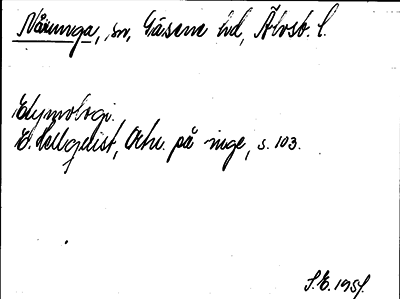 Nårunga, sn, Gäsene hd, Älvsb. l.
Etymologi.
E. Hellquist, Ortn. på -inge, s. 103.
S.E. 1951.